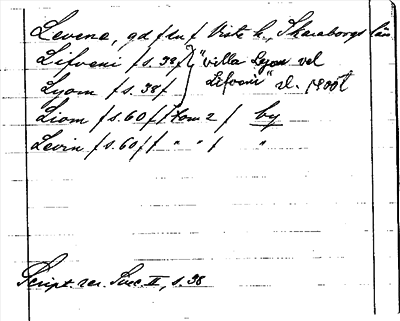 Levene, gd f sn f Viste h., Skaraborgs län
Lifveni / s. 38 / } "villa Lyom vel
Lyom / s. 38 / Lifveni" sl. 1400 t
Liom / s. 60 / / tom 2 / by
Levin / s. 60 / / " " / "
Script. rer. Svec. II, s. 38